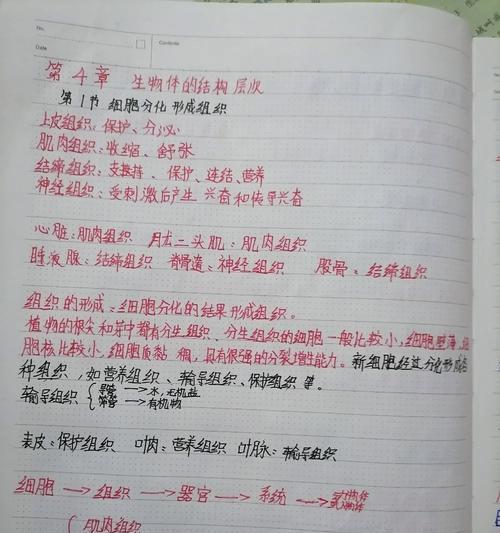 No.
Date
Contents
第4章 生物体的结构层次
第1节 细胞分化形成组织
上皮组织:保护、分泌
肌肉组织:收缩、舒张
结缔组织:支持、保护、连结、营养
神经组织:受刺激后产生兴奋和传导兴奋
心脏:肌肉组织 肱二头肌:肌肉组织
唾液腺:结缔组织 脊髓:神经组织 股骨:结缔组织
组织的形成:细胞分化的结果形成组织。
植物的根尖和茎中都有分生组织、分生组织的细胞一般比较小,细胞壁薄,细
胞核比较小,细胞质黏稠,具有很强的分裂增生能力。新细胞经过分化形成各
种组织,如营养组织、输导组织、保护组织等。
输导组织{导管→水,无机盐
筛管→有机物
表皮:保护组织 叶肉:营养组织 叶脉:输导组织
细胞→组织→器官→系统→
{肌肉组织